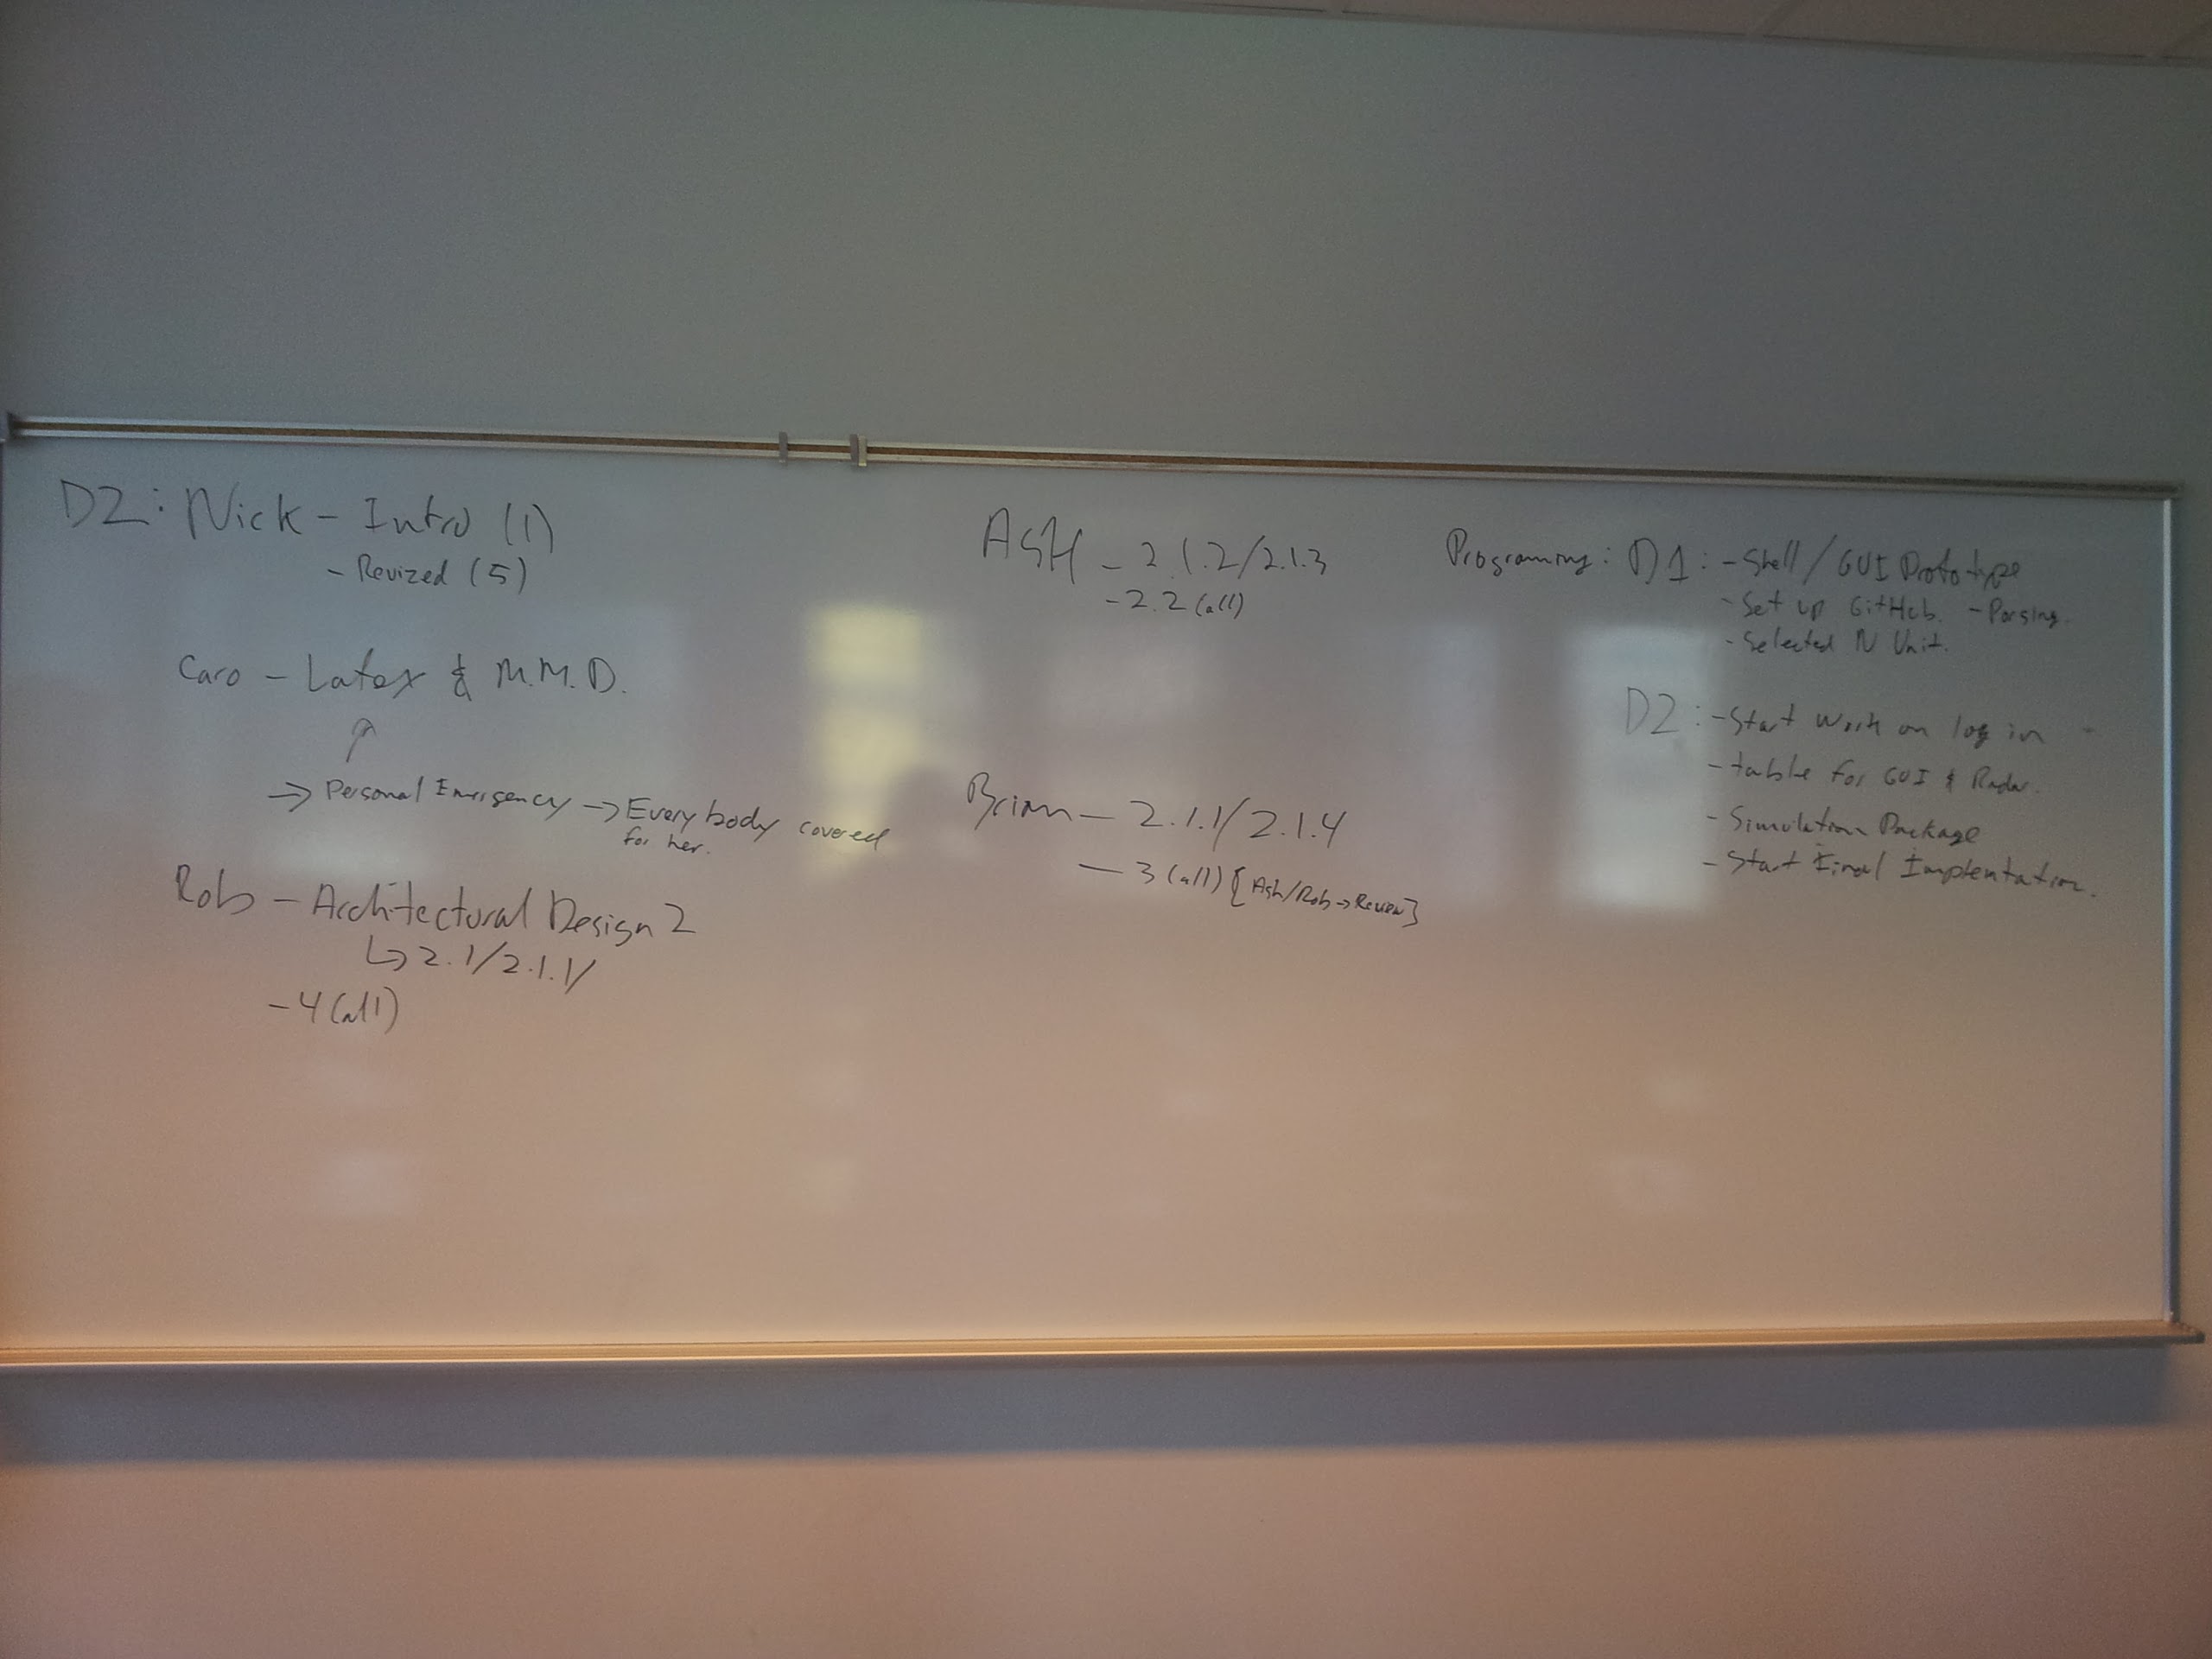 D2: Nick - Intro (1)
- Revized (5)
Caro - Latex & M.M.D.
→ Personal Emergency → Everybody covered
for her.
Rob - Architectural Design 2
↳ 2.1/2.1.1/
- 4 (all)
ASH - 2.1.2/2.1.3
- 2.2 (all)
Brian - 2.1.1/2.1.4
- 3 (all) [Ash/Rob → Review]
Programing: D1: - Shell/GUI Prototype
- Set up GitHub. - Parsing.
- Selected N Unit.
D2: - Start work on log in
- table for GUI & Radar.
- Simulation Package
- Start Final Implentation.